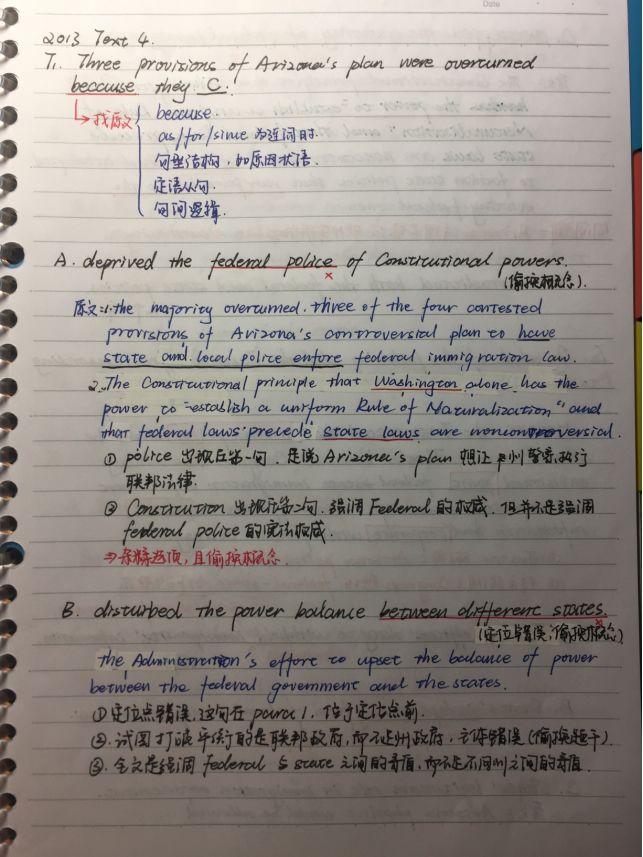 Date
2013 Text 4.
T1. Three provisions of Arizona's plan were overturned
because they C.
→找原文 because.
as/for/since 为连词时.
句型结构, 如原因状语.
定语从句.
句间逻辑.
A. deprived the federal police of Constitutional powers.
× (偷换概念).
原文:1. the majority overturned three of the four contested
provisions of Arizona's controversial plan to have
state and local police enfore federal immigration law.
2. The Constitutional principle that Washington alone has the
power to "establish a uniform Rule of Naturalization" and
that federal laws precede state laws are noncontroversial.
① police 出现在第一句, 是说 Arizona's plan 想让州警察执行
联邦法律.
② Constitution 出现在第二句. 强调 Federal 的权威, 但并不是强调
federal police 的宪法权威.
⇒杂糅选项, 且偷换概念.
B. disturbed the power balance between different states.
(定位错误, 偷换概念)
the Administration's effort to upset the balance of power
between the federal government and the states.
①定位点错误, 这句在 para 1, 位于定位点前.
②. 试图打破平衡的是联邦政府, 而不是州政府, 主体错误 (偷换题干).
③. 全文是强调 federal 与 state 之间的矛盾, 而不是不同州之间的矛盾.